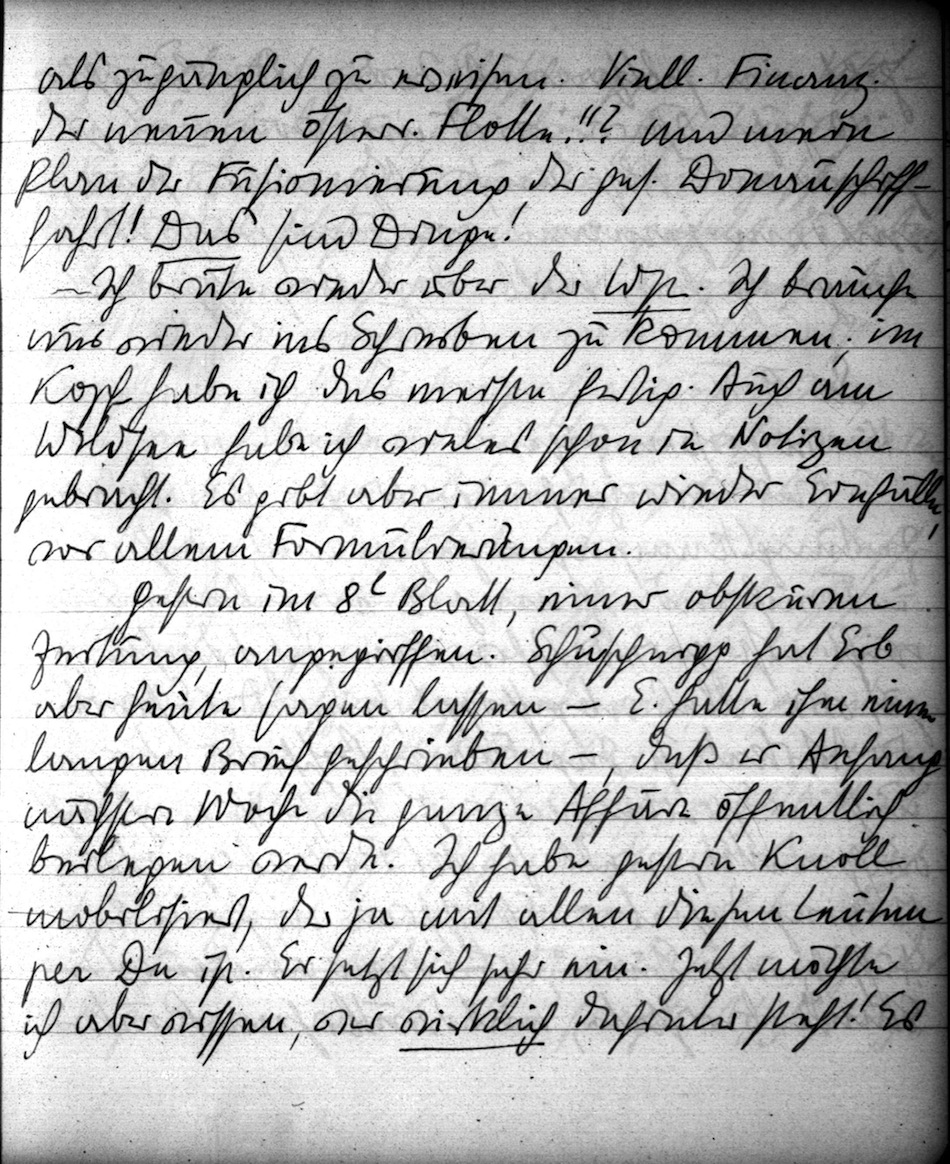 als zugänglich zu erweisen. Viell. Finanz.
der neuen österr. Flotte!!"? und mein
Plan der Fusionierung der ges. Donauschiff-
fahrt! Das sind Dinge!
– Ich brüte wieder über der Wst. Ich brauche
nur wieder ins Schreiben zu kommen; im
Kopf habe ich das meiste fertig. Auch am
Wildsee habe ich vieles schon in Notizen
gebracht. Es gibt aber immer wieder Einfälle,
vor allem Formulierungen.
Gestern im 8h Blatt, einer obskuren
Zeitung, angegriffen. Schuschnigg hat Erb
aber heute sagen lassen – E. hatte ihm einen
langen Brief geschrieben –, daß er Anfang
nächster Woche die ganze Affäre öffentlich
beilegen werde. Ich habe gestern Knoll
mobilisiert, der ja mit allen diesen Leuten
per Du ist. Er setzt sich sehr ein. Jetzt möchte
ich aber wissen, wer wirklich dahinter steht! Es